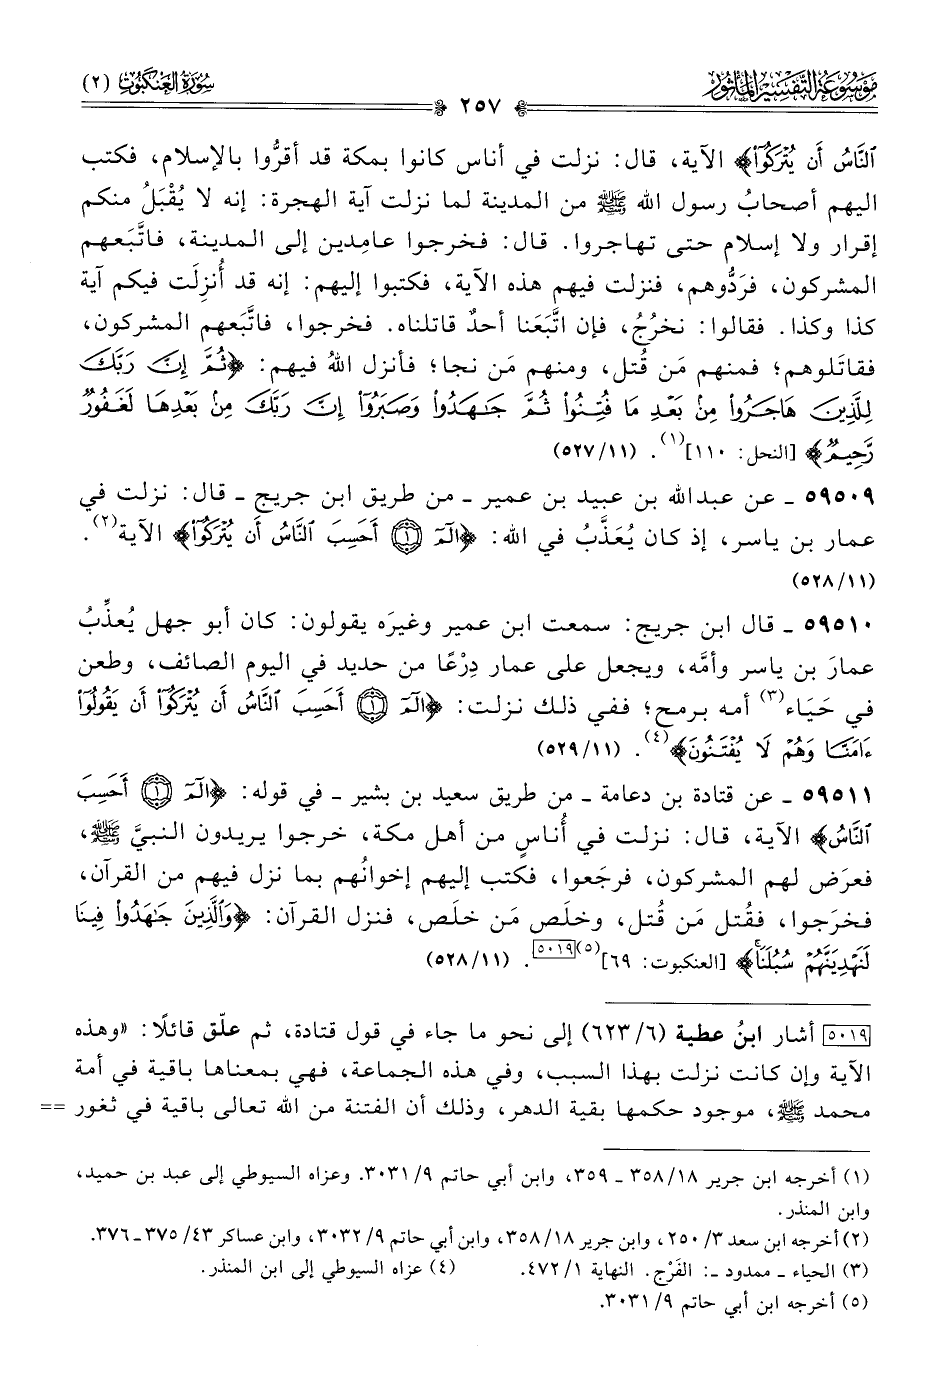 موسوعة التفسير المأثور
سورة العنكبوت (٢)
٢٥٧
ٱلنَّاسُ أَن يُتْرَكُوٓا۟﴾ الآية، قال: نزلت في أناس كانوا بمكة قد أقرُّوا بالإسلام، فكتب
اليهم أصحابُ رسول الله ﷺ من المدينة لما نزلت آية الهجرة: إنه لا يُقْبَلُ منكم
إقرار ولا إسلام حتى تهاجروا. قال: فخرجوا عامِدين إلى المدينة، فاتَّبَعهم
المشركون، فرَدُّوهم، فنزلت فيهم هذه الآية، فكتبوا إليهم: إنه قد أُنزِلَت فيكم آية
كذا وكذا. فقالوا: نخرُجُ، فإن اتَّبَعَنا أحدٌ قاتلناه. فخرجوا، فاتَّبَعهم المشركون،
فقاتَلوهم؛ فمنهم مَن قُتل، ومنهم مَن نجا؛ فأنزل اللهُ فيهم: ﴿ثُمَّ إِنَّ رَبَّكَ
لِلَّذِينَ هَاجَرُوا۟ مِنۢ بَعْدِ مَا فُتِنُوا۟ ثُمَّ جَـٰهَدُوا۟ وَصَبَرُوٓا۟ إِنَّ رَبَّكَ مِنۢ بَعْدِهَا لَغَفُورٌ
رَّحِيمٌ﴾ [النحل: ١١٠](١). (٥٢٧/١١)
٥٩٥٠٩ ـ عن عبدالله بن عبيد بن عمير ـ من طريق ابن جريج ـ قال: نزلت في
عمار بن ياسر، إذ كان يُعَذَّبُ في الله: ﴿الٓمٓ ۝١ أَحَسِبَ ٱلنَّاسُ أَن يُتْرَكُوٓا۟﴾ الآية(٢).
(٥٢٨/١١)
٥٩٥١٠ ـ قال ابن جريج: سمعت ابن عمير وغيرَه يقولون: كان أبو جهل يُعذِّبُ
عمارَ بن ياسر وأمَّه، ويجعل على عمار دِرْعًا من حديد في اليوم الصائف، وطعن
في حَيَاء(٣) أمه برمح؛ ففي ذلك نزلت: ﴿الٓمٓ ۝١ أَحَسِبَ ٱلنَّاسُ أَن يُتْرَكُوٓا۟ أَن يَقُولُوٓا۟
ءَامَنَّا وَهُمْ لَا يُفْتَنُونَ﴾(٤). (٥٢٩/١١)
٥٩٥١١ ـ عن قتادة بن دعامة ـ من طريق سعيد بن بشير ـ في قوله: ﴿الٓمٓ ۝١ أَحَسِبَ
ٱلنَّاسُ﴾ الآية، قال: نزلت في أُناسٍ من أهل مكة، خرجوا يريدون النبيَّ ﷺ،
فعرَض لهم المشركون، فرجَعوا، فكتب إليهم إخوانُهم بما نزل فيهم من القرآن،
فخرَجوا، فقُتل مَن قُتل، وخلَص مَن خلَص، فنزل القرآن: ﴿وَٱلَّذِينَ جَـٰهَدُوا۟ فِينَا
لَنَهْدِيَنَّهُمْ سُبُلَنَا﴾ [العنكبوت: ٦٩](٥)[٥٠١٩]. (٥٢٨/١١)
[٥٠١٩] أشار ابنُ عطية (٦/ ٦٢٣) إلى نحو ما جاء في قول قتادة، ثم علّق قائلًا: «وهذه
الآية وإن كانت نزلت بهذا السبب، وفي هذه الجماعة، فهي بمعناها باقية في أمة
محمد ﷺ، موجود حكمها بقية الدهر، وذلك أن الفتنة من الله تعالى باقية في ثغور ==
(١) أخرجه ابن جرير ١٨/ ٣٥٨ ـ ٣٥٩، وابن أبي حاتم ٩/ ٣٠٣١. وعزاه السيوطي إلى عبد بن حميد،
وابن المنذر.
(٢) أخرجه ابن سعد ٣/ ٢٥٠، وابن جرير ١٨/ ٣٥٨، وابن أبي حاتم ٩/ ٣٠٣٢، وابن عساكر ٤٣/ ٣٧٥ـ ٣٧٦.
(٣) الحياء ـ ممدود ـ: الفَرْج. النهاية ١/ ٤٧٢. (٤) عزاه السيوطي إلى ابن المنذر.
(٥) أخرجه ابن أبي حاتم ٩/ ٣٠٣١.